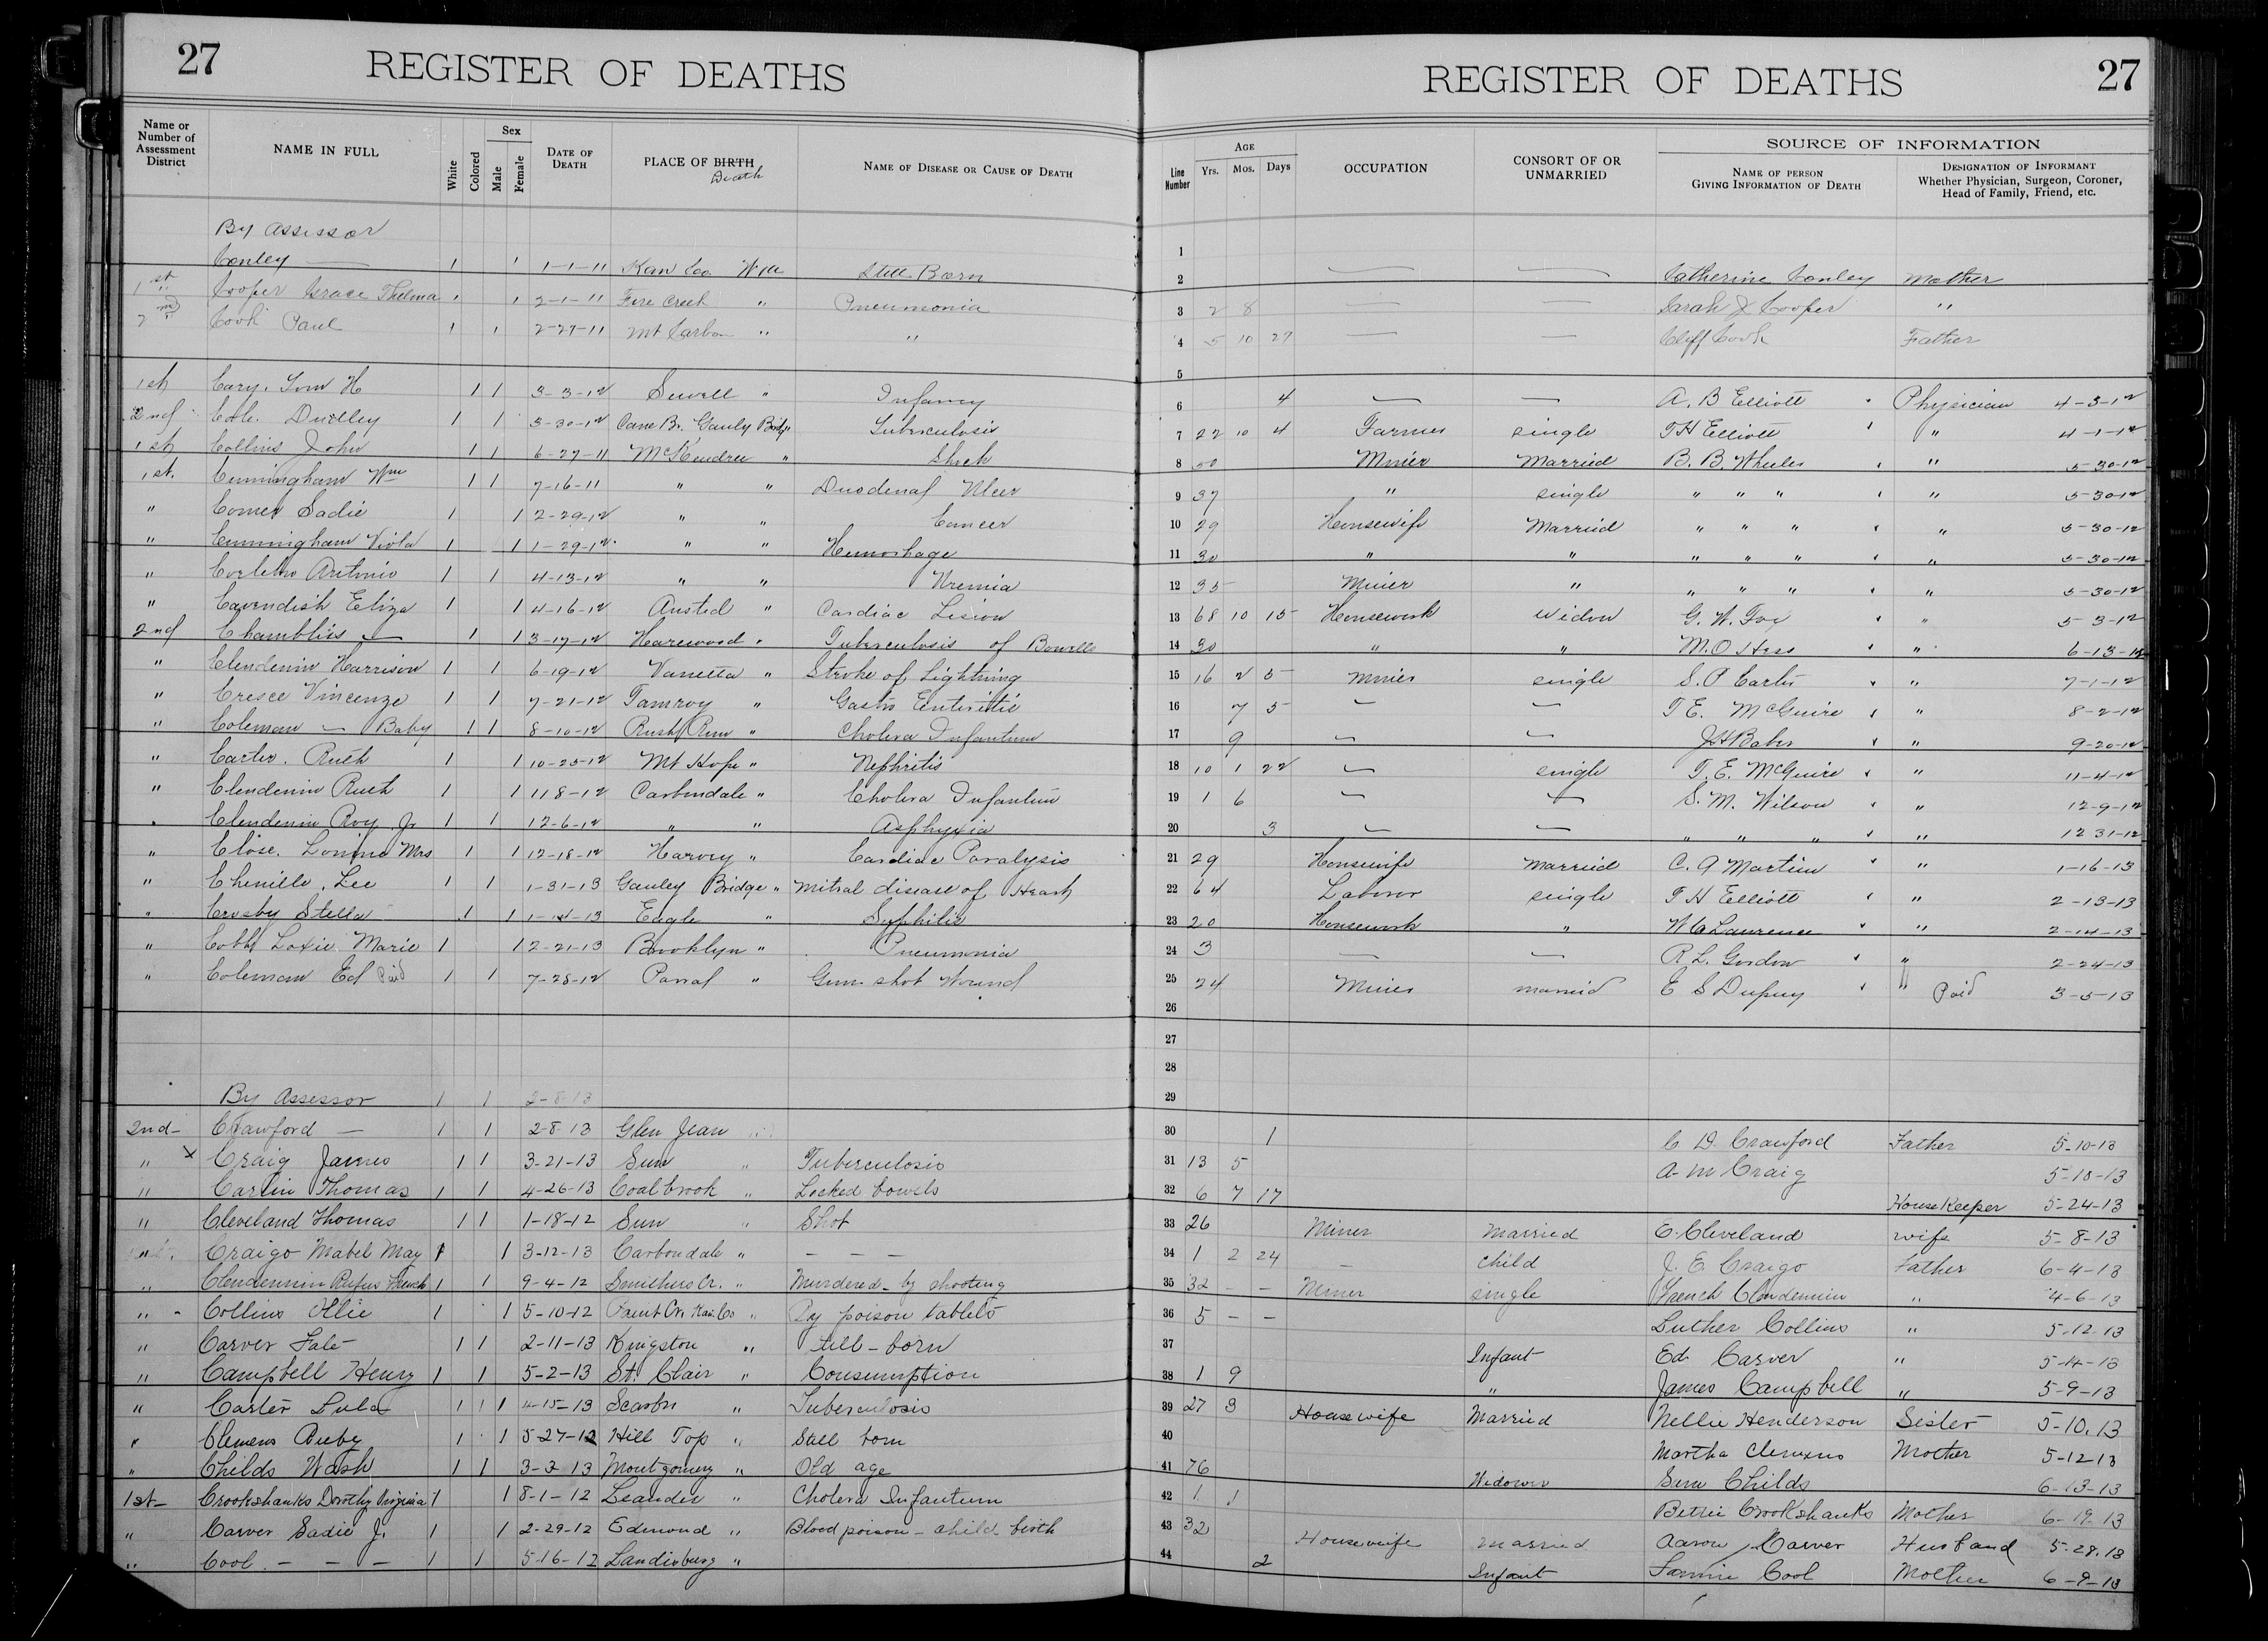 27 REGISTER OF DEATHS
REGISTER OF DEATHS 27
Name or Number of Assessment District | NAME IN FULL | White | Colored | Sex Male Female | DATE OF DEATH | PLACE OF BIRTH Death | NAME OF DISEASE OR CAUSE OF DEATH | Line Number | AGE Yrs. Mos. Days | OCCUPATION | CONSORT OF OR UNMARRIED | SOURCE OF INFORMATION | NAME OF PERSON GIVING INFORMATION OF DEATH | DESIGNATION OF INFORMANT Whether Physician, Surgeon, Coroner, Head of Family, Friend, etc.
By Assessor 1
Conley — 1 1 1-1-11 Kan Co WVa Still Born 2 — — Catherine Conley Mother
1st Cooper Grace Thelma 1 1 2-1-11 Fire Creek " Pneumonia 3 2 8 — — Sarah J Cooper "
2nd Cook Paul 1 1 2-27-11 Mt Carbon " " 4 5 10 27 — — Cliff Cook Father
5
1st Cary, Tom H 1 1 3-3-12 Sewell " Infancy 6 4 — — A. B Elliott Physician 4-3-12
2nd Cole. Dudley 1 1 3-30-12 Cane Br. Gauly Bridge " Tuberculosis 7 22 10 4 Farmer single T H Elliott " 4-1-12
1st Collins John 1 1 6-27-11 McKendree " Shock 8 50 Miner Married B. B. Wheeler " 5-30-12
1st. Cunningham Wm 1 1 7-16-11 " " Duodenal Ulcer 9 37 " single " " " " 5-30-12
" Comer Sadie 1 1 2-29-12 " " Cancer 10 29 Housewife Married " " " " 5-30-12
" Cunningham Viola 1 1 1-29-12 " " Hemorhage 11 30 " " " " " " 5-30-12
" Antonio 1 1 4-13-12 " " Uremia 12 35 Miner " " " " " 5-30-12
" Cavendish Eliza 1 1 4-16-12 Ansted " Cardiac Lision 13 68 10 15 Housework widow G. W. Fox " 5-3-12
2nd Chambliss — 1 1 3-17-12 Harewood " Tuberculosis of Bowells 14 30 " " M. O Hess " 6-13-12
" Clendenin Harrison 1 1 6-19-12 Vanetta " Stroke of Lightning 15 16 2 5 Miner single S. P Carter " 7-1-12
" Cresce Vincenzo 1 1 7-21-12 Tamroy " Gastro Enteritis 16 7 5 — — T E. McGuire " 8-2-12
" Coleman — Baby 1 1 8-10-12 Rush Run " Cholera Infantum 17 9 — — J H Baber " 9-20-12
" Carter. Ruth 1 1 10-25-12 Mt Hope " Nephritis 18 10 1 22 — single T. E. McGuire " 11-4-12
" Clendenin Ruth 1 1 11 8-12 Carbondale " Cholera Infantum 19 1 6 — — S. M. Wilson " 12-9-12
" Clendenin Roy Jr 1 1 12-6-12 " " Asphyxia 20 3 — — " " " " 12 31-12
" Close. Lonina Mrs 1 1 12-18-12 Harvey " Cardiac Paralysis 21 29 Housewife married C. A Martin " 1-16-13
" Chenille, Lee 1 1 1-31-13 Gauley Bridge " Mitral disease of Heart 22 64 Laborer single T H Elliott " 2-13-13
" Crosby Stella 1 1 Eagle " Syphilis 23 20 Housework " W C Laurence " 2-14-13
" Cobb Loxie Marie 1 1 2-21-13 Brooklyn " Pneumonia 24 3 — — R L. Gordon " 2-24-13
" Coleman Ed Paid 1 1 7-28-12 Parral " Gun shot Wound 25 24 Miner married E S Dupuy " Paid 3-5-13
26
27
28
By Assessor 1 1 2-8-13 29
2nd- Crawford — 1 1 2-8-13 Glen Jean 30 1 C D. Crawford Father 5-10-13
" x Craig James 1 1 3-21-13 Sun " Tuberculosis 31 13 5 A. M Craig 5-15-13
" Carlin Thomas 1 1 4-26-13 Coalbrook " Locked bowels 32 6 7 17 House Keeper 5-24-13
" Cleveland Thomas 1 1 1-18-12 Sun " Shot 33 26 Miner Married E. Cleveland wife 5-8-13
Craigo Mabel May 1 1 3-12-13 Carbondale " — — — 34 1 2 24 — child J. E. Craigo Father 6-4-13
" Clendennin Rufus French 1 1 9-4-12 Smithers Cr. " Murdered by shooting 35 32 — — Miner single French Clendennin " 4-6-13
" Collins Ollie 1 1 5-10-12 Paint Cr. Kan. Co " By poison tablets 36 5 — — Luther Collins " 5-12-13
" Carver Fate 1 1 2-11-13 Kingston " Still-born 37 Infant Ed Carver " 5-14-13
" Campbell Henry 1 1 5-2-13 St. Clair " Consumption 38 1 9 " James Campbell " 5-9-13
" Carter Lula 1 1 1 4-15-13 Scarbro " Tuberculosis 39 27 3 Housewife Married Nellie Henderson Sister 5-10.13
" Clemens Ruby 1 1 5-27-12 Hill Top " Still born 40 Martha Clemens Mother 5-12-13
" Childs Wash 1 1 3-3 13 Montgomery " Old age 41 76 Widower Childs 6-13-13
1st- Crookshanks Dorothy Virginia 1 1 8-1-12 Leander " Cholera Infantum 42 1 1 Bettie Crookshanks Mother 6-19-13
" Carver Sadie J. 1 1 2-29-12 Edmond " Blood poison - child birth 43 32 Housewife Married Aaron Carver Husband 5-28.13
" Cool — — — 1 1 5-16-12 Landisburg " 44 2 Infant Fannie Cool Mother 6-9-13